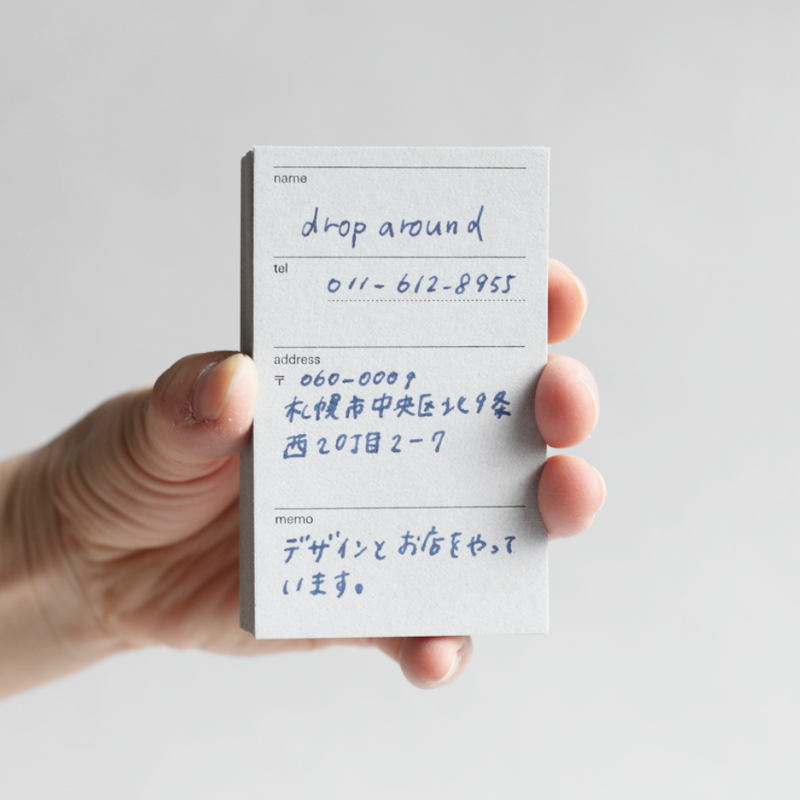 name
drop around
tel
011-612-8955
address
〒 060-0009
札幌市中央区北9条
西20丁目2-7
memo
デザインとお店をやって
います。